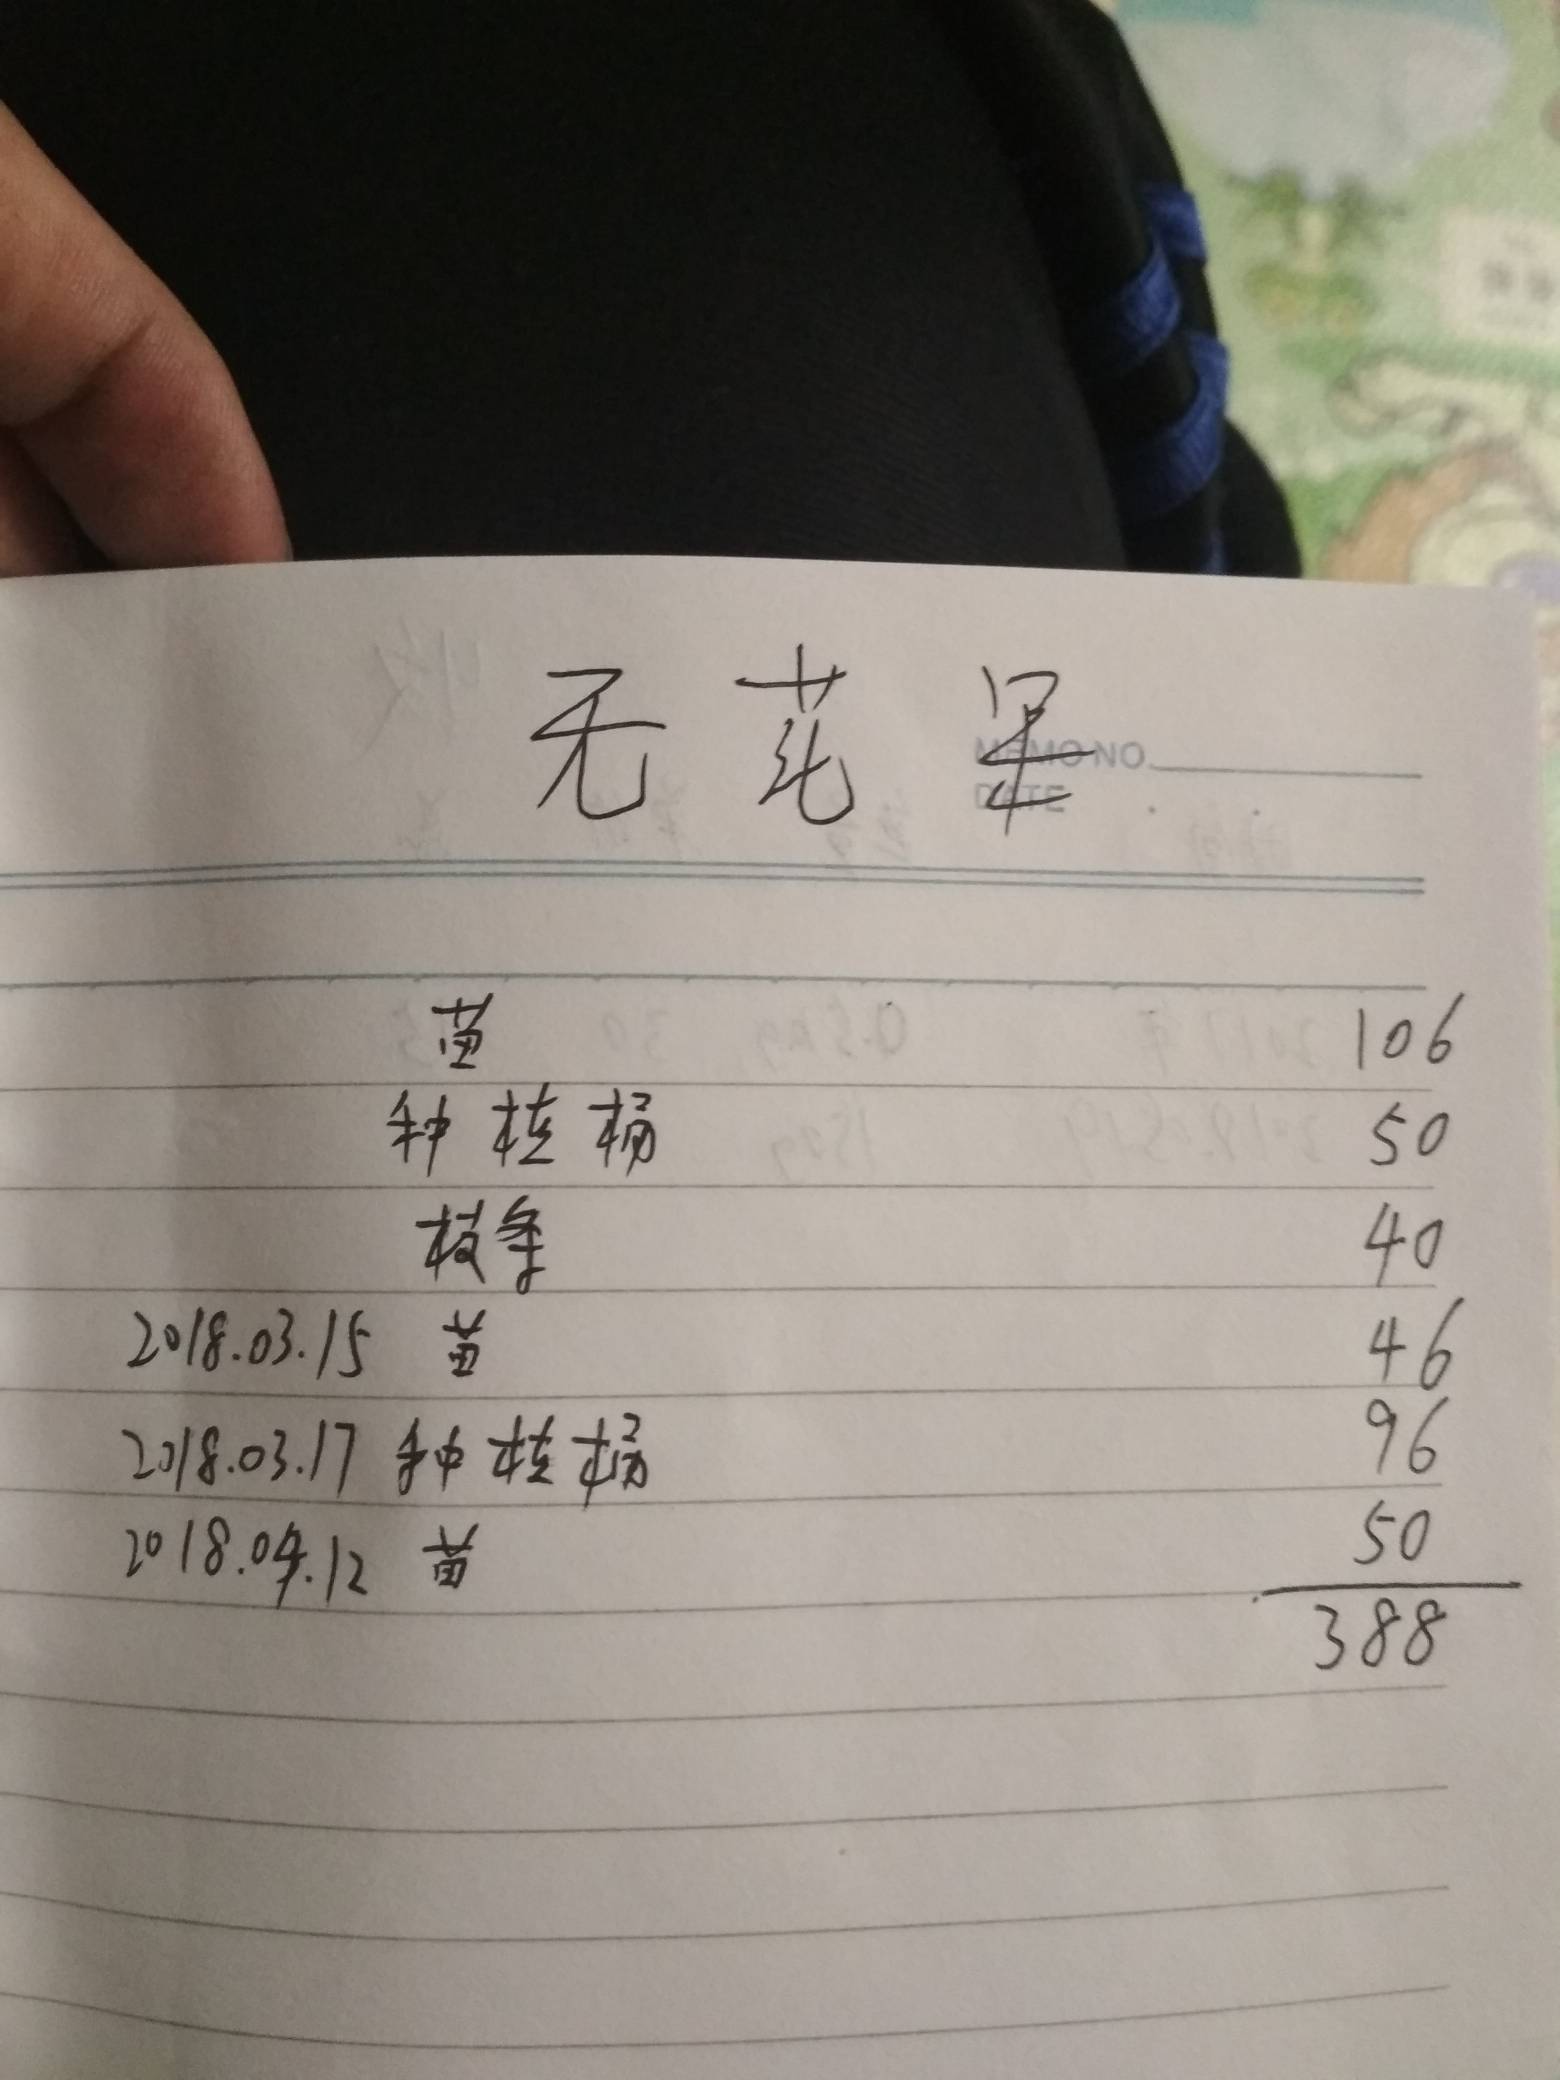 无花果
MEMO NO.
DATE
苗 106
种植桶 50
枝条 40
2018.03.15 苗 46
2018.03.17 种植桶 96
2018.04.12 苗 50
388